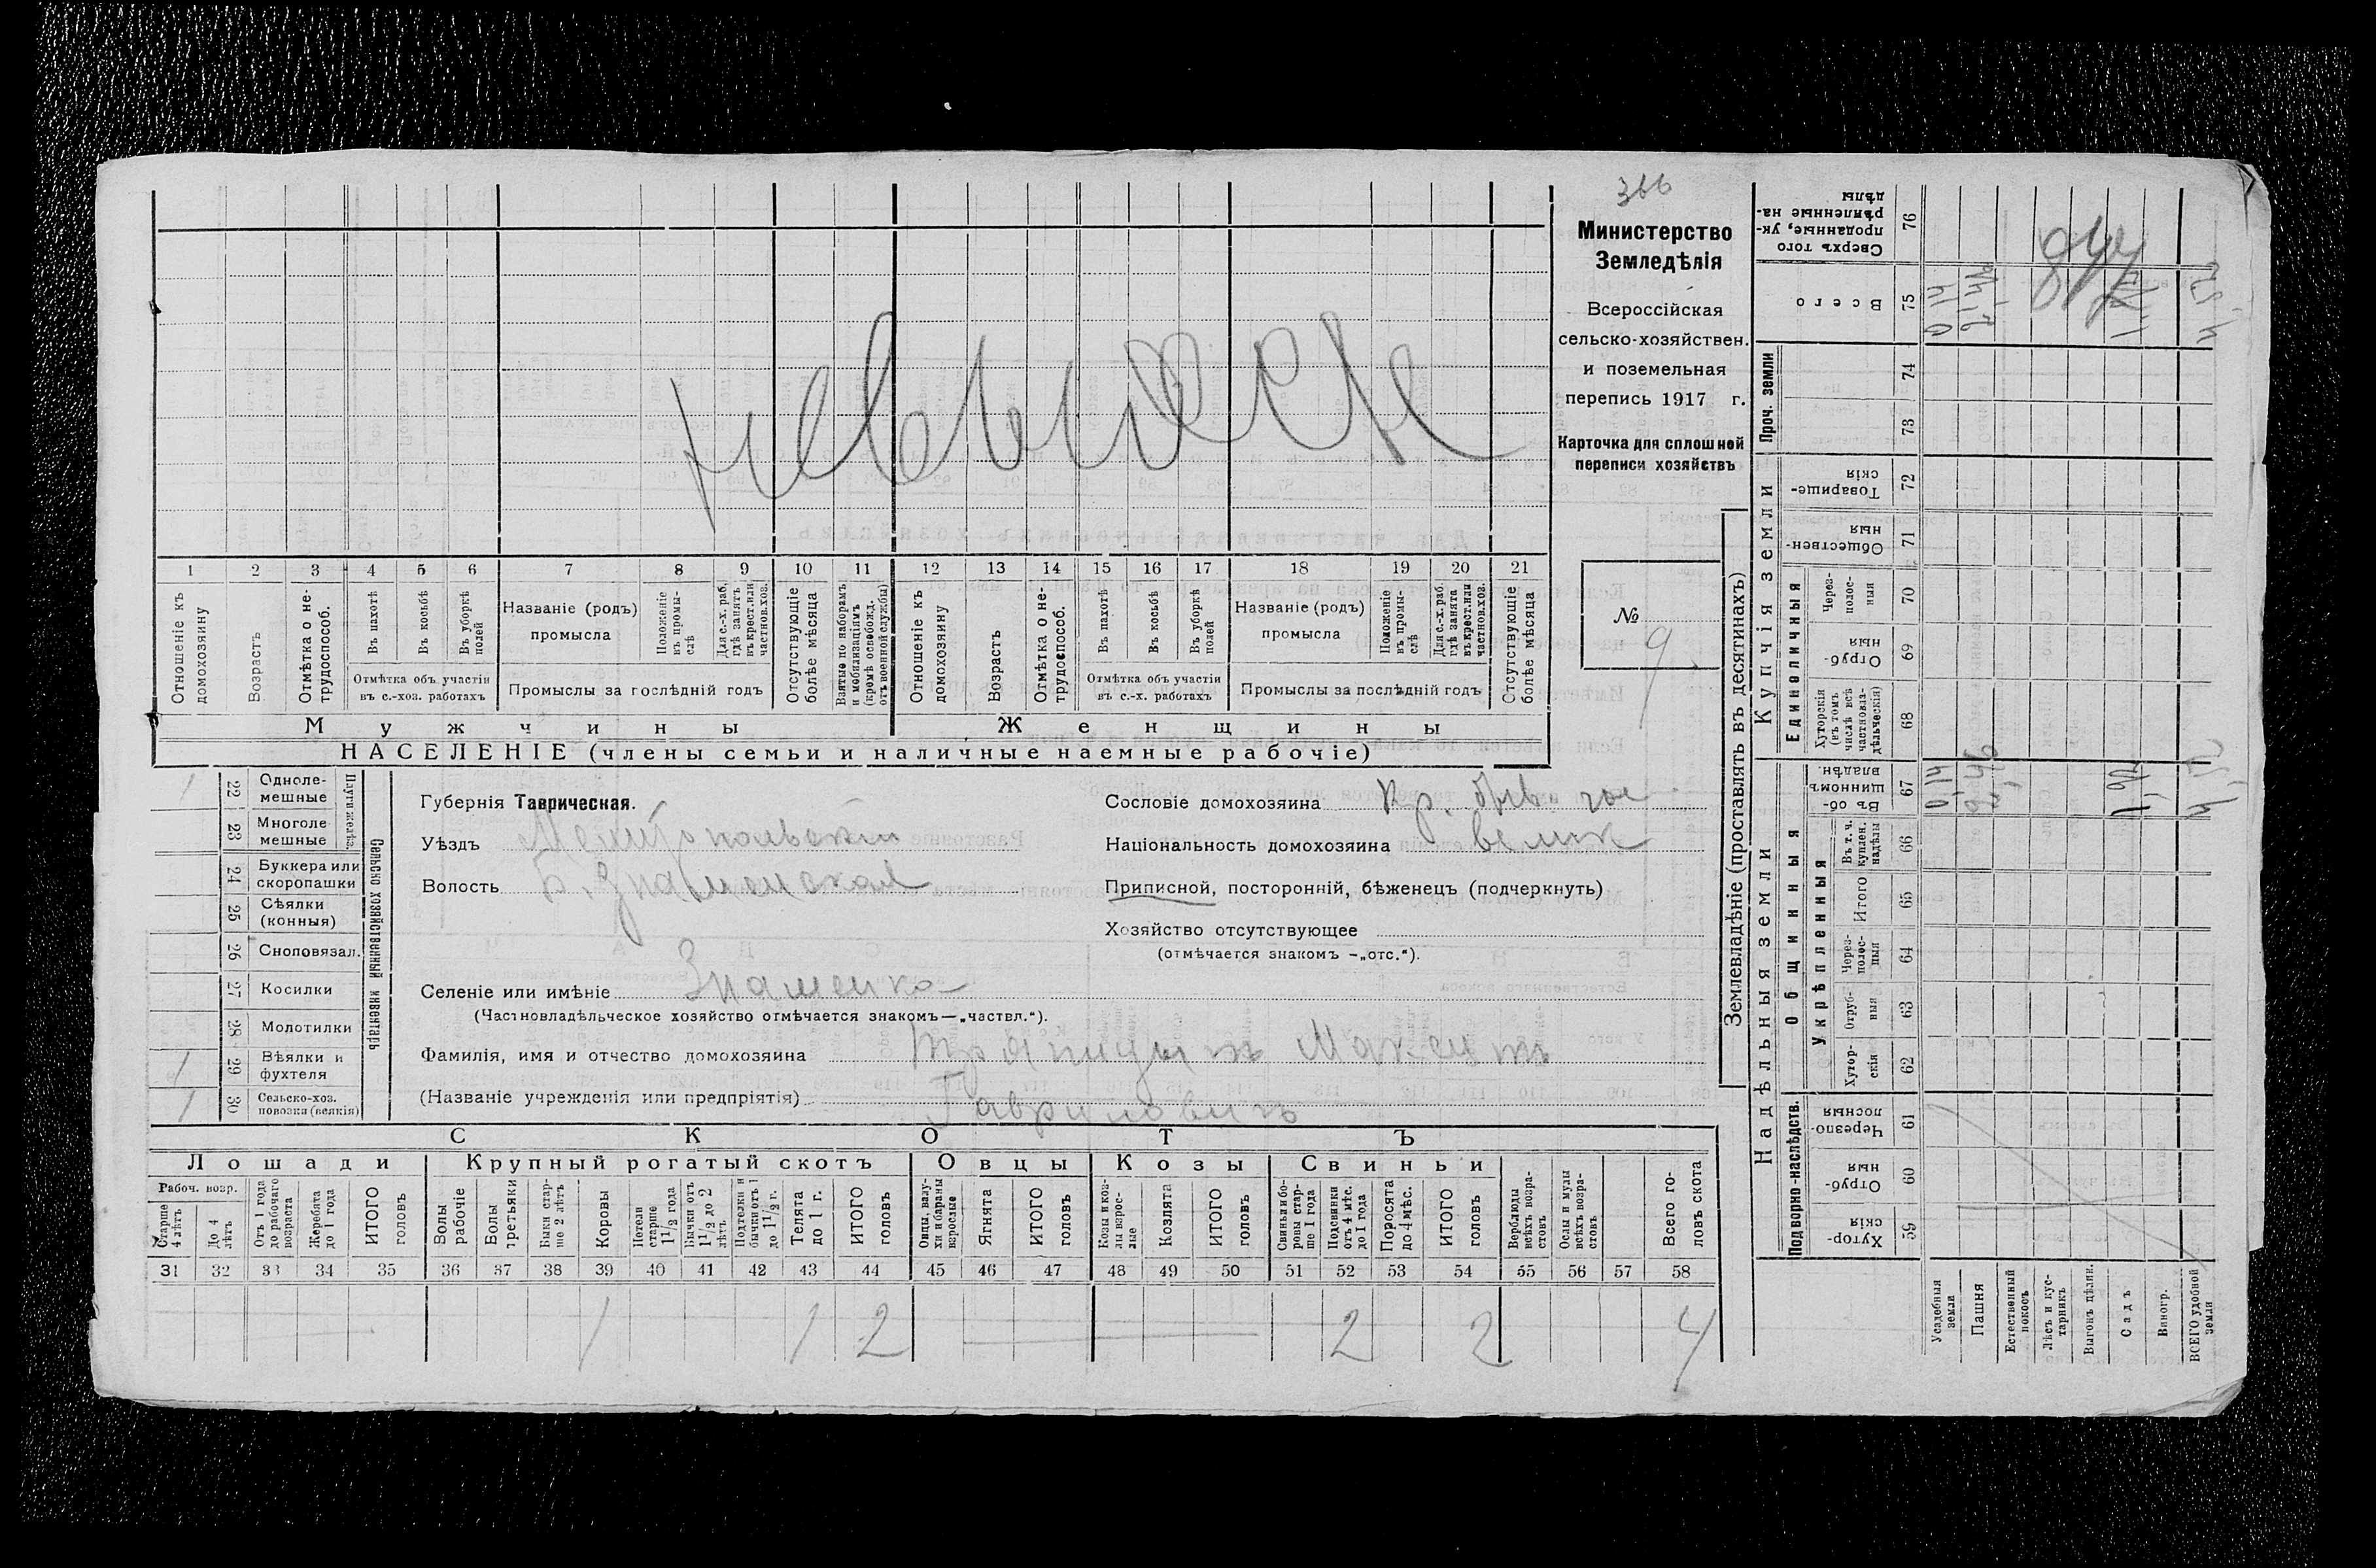 366
Министерство
Земледѣлія
Всероссійская
сельско-хозяйствен.
и поземельная
перепись 1917 г.
Карточка для сплошной
переписи хозяйствъ
№ 9
1 2 3 4 5 6 7 8 9 10 11 12 13 14 15 16 17 18 19 20 21
Отношеніе къ домохозяину
Возрастъ
Отмѣтка о не-трудоспособ.
Въ пахотѣ
Въ косьбѣ
Въ уборкѣ полей
Отмѣтка объ участіи
въ с.-хоз. работахъ
Названіе (родъ)
промысла
Положеніе въ промы-слѣ
Для с.-х. раб. гдѣ занятъ въ крест. или частнов. хоз.
Промыслы за послѣдній годъ
Отсутствующіе болѣе мѣсяца
Взятые по наборамъ и мобилизаціямъ (кромѣ освобожд. отъ военной службы)
Отношеніе къ домохозяину
Возрастъ
Отмѣтка о не-трудоспособ.
Въ пахотѣ
Въ косьбѣ
Въ уборкѣ полей
Отмѣтка объ участіи
въ с.-х. работахъ
Названіе (родъ)
промысла
Положеніе въ промы-слѣ
Для с.-х. раб. гдѣ занята въ крест. или частнов. хоз.
Промыслы за послѣдній годъ
Отсутствующіе болѣе мѣсяца
Мужчины Женщины
НАСЕЛЕНІЕ (члены семьи и наличные наемные рабочіе)
Сельско хозяйственный инвентарь
Плуги желѣз.
1 22 Одноле-мешные
23 Многоле-мешные
24 Буккера или скоропашки
25 Сѣялки (конныя)
26 Сноповязал.
27 Косилки
28 Молотилки
1 29 Вѣялки и фухтеля
1 30 Сельско-хоз. повозки (всякія)
Губернія Таврическая.
Уѣздъ Мелитопольскій
Волость Б. Знаменская
Сословіе домохозяина кр.
Національность домохозяина велик
Приписной, посторонній, бѣженецъ (подчеркнуть)
Хозяйство отсутствующее
(отмѣчается знакомъ —„отс.“).
Селеніе или имѣніе Знаменка
(Частновладѣльческое хозяйство отмѣчается знакомъ—„частвл.“).
Фамилія, имя и отчество домохозяина
(Названіе учрежденія или предпріятія) Гавриловичъ
СКОТЪ
Лошади Крупный рогатый скотъ Овцы Козы Свиньи
Рабоч. возр.
Старше 4 лѣтъ
До 4 лѣтъ
Отъ 1 года до рабочаго возраста
Жеребята до 1 года
ИТОГО головъ
Волы рабочіе
Волы третьяки
Быки стар-ше 2 лѣтъ
Коровы
Нетели старше 1½ года
Бычки отъ 1½ до 2 лѣтъ
Подтелки и бычки отъ 1 до 1½ г.
Телята до 1 г.
ИТОГО головъ
Овцы, валу-хи и бараны взрослые
Ягнята
ИТОГО головъ
Козы и коз-лы взрос-лые
Козлята
ИТОГО головъ
Свиньи и бо-ровы стар-ше 1 года
Подсвинки отъ 4 мѣс. до 1 года
Поросята до 4 мѣс.
ИТОГО головъ
Верблюды всѣхъ возра-стовъ
Ослы и мулы всѣхъ возра-стовъ
Всего го-ловъ скота
31 32 33 34 35 36 37 38 39 40 41 42 43 44 45 46 47 48 49 50 51 52 53 54 55 56 57 58
1 1 2 2 2 4
Землевладѣніе (проставлять въ десятинахъ)
Надѣльныя земли Купчія земли Проч. земли
Подворно-наслѣдств. Общинныя Единоличныя
Укрѣпленныя
Хутор-скія 59
Отруб-ныя 60
Черезпо-лосныя 61
Хутор-скія 62
Отруб-ныя 63
Через-полос-ныя 64
Итого 65
Въ т. ч. куплен. надѣлы 66
Въ об-щинномъ владѣн. 67
Хуторскія (въ томъ числѣ всѣ частновла-дѣльческія) 68
Отруб-ныя 69
Через-полос-ныя 70
Обществен-ныя 71
Товарище-скія 72
73
74
Всего 75
Сверхъ того проданные, ук-рѣпленные на-дѣлы 76
Усадебныя земли 0,14 0,14
Пашня
Естественный покосъ
Лѣсъ и кус-тарникъ
Выгонъ цѣлик.
Садъ
Виногр.
ВСЕГО удобной земли